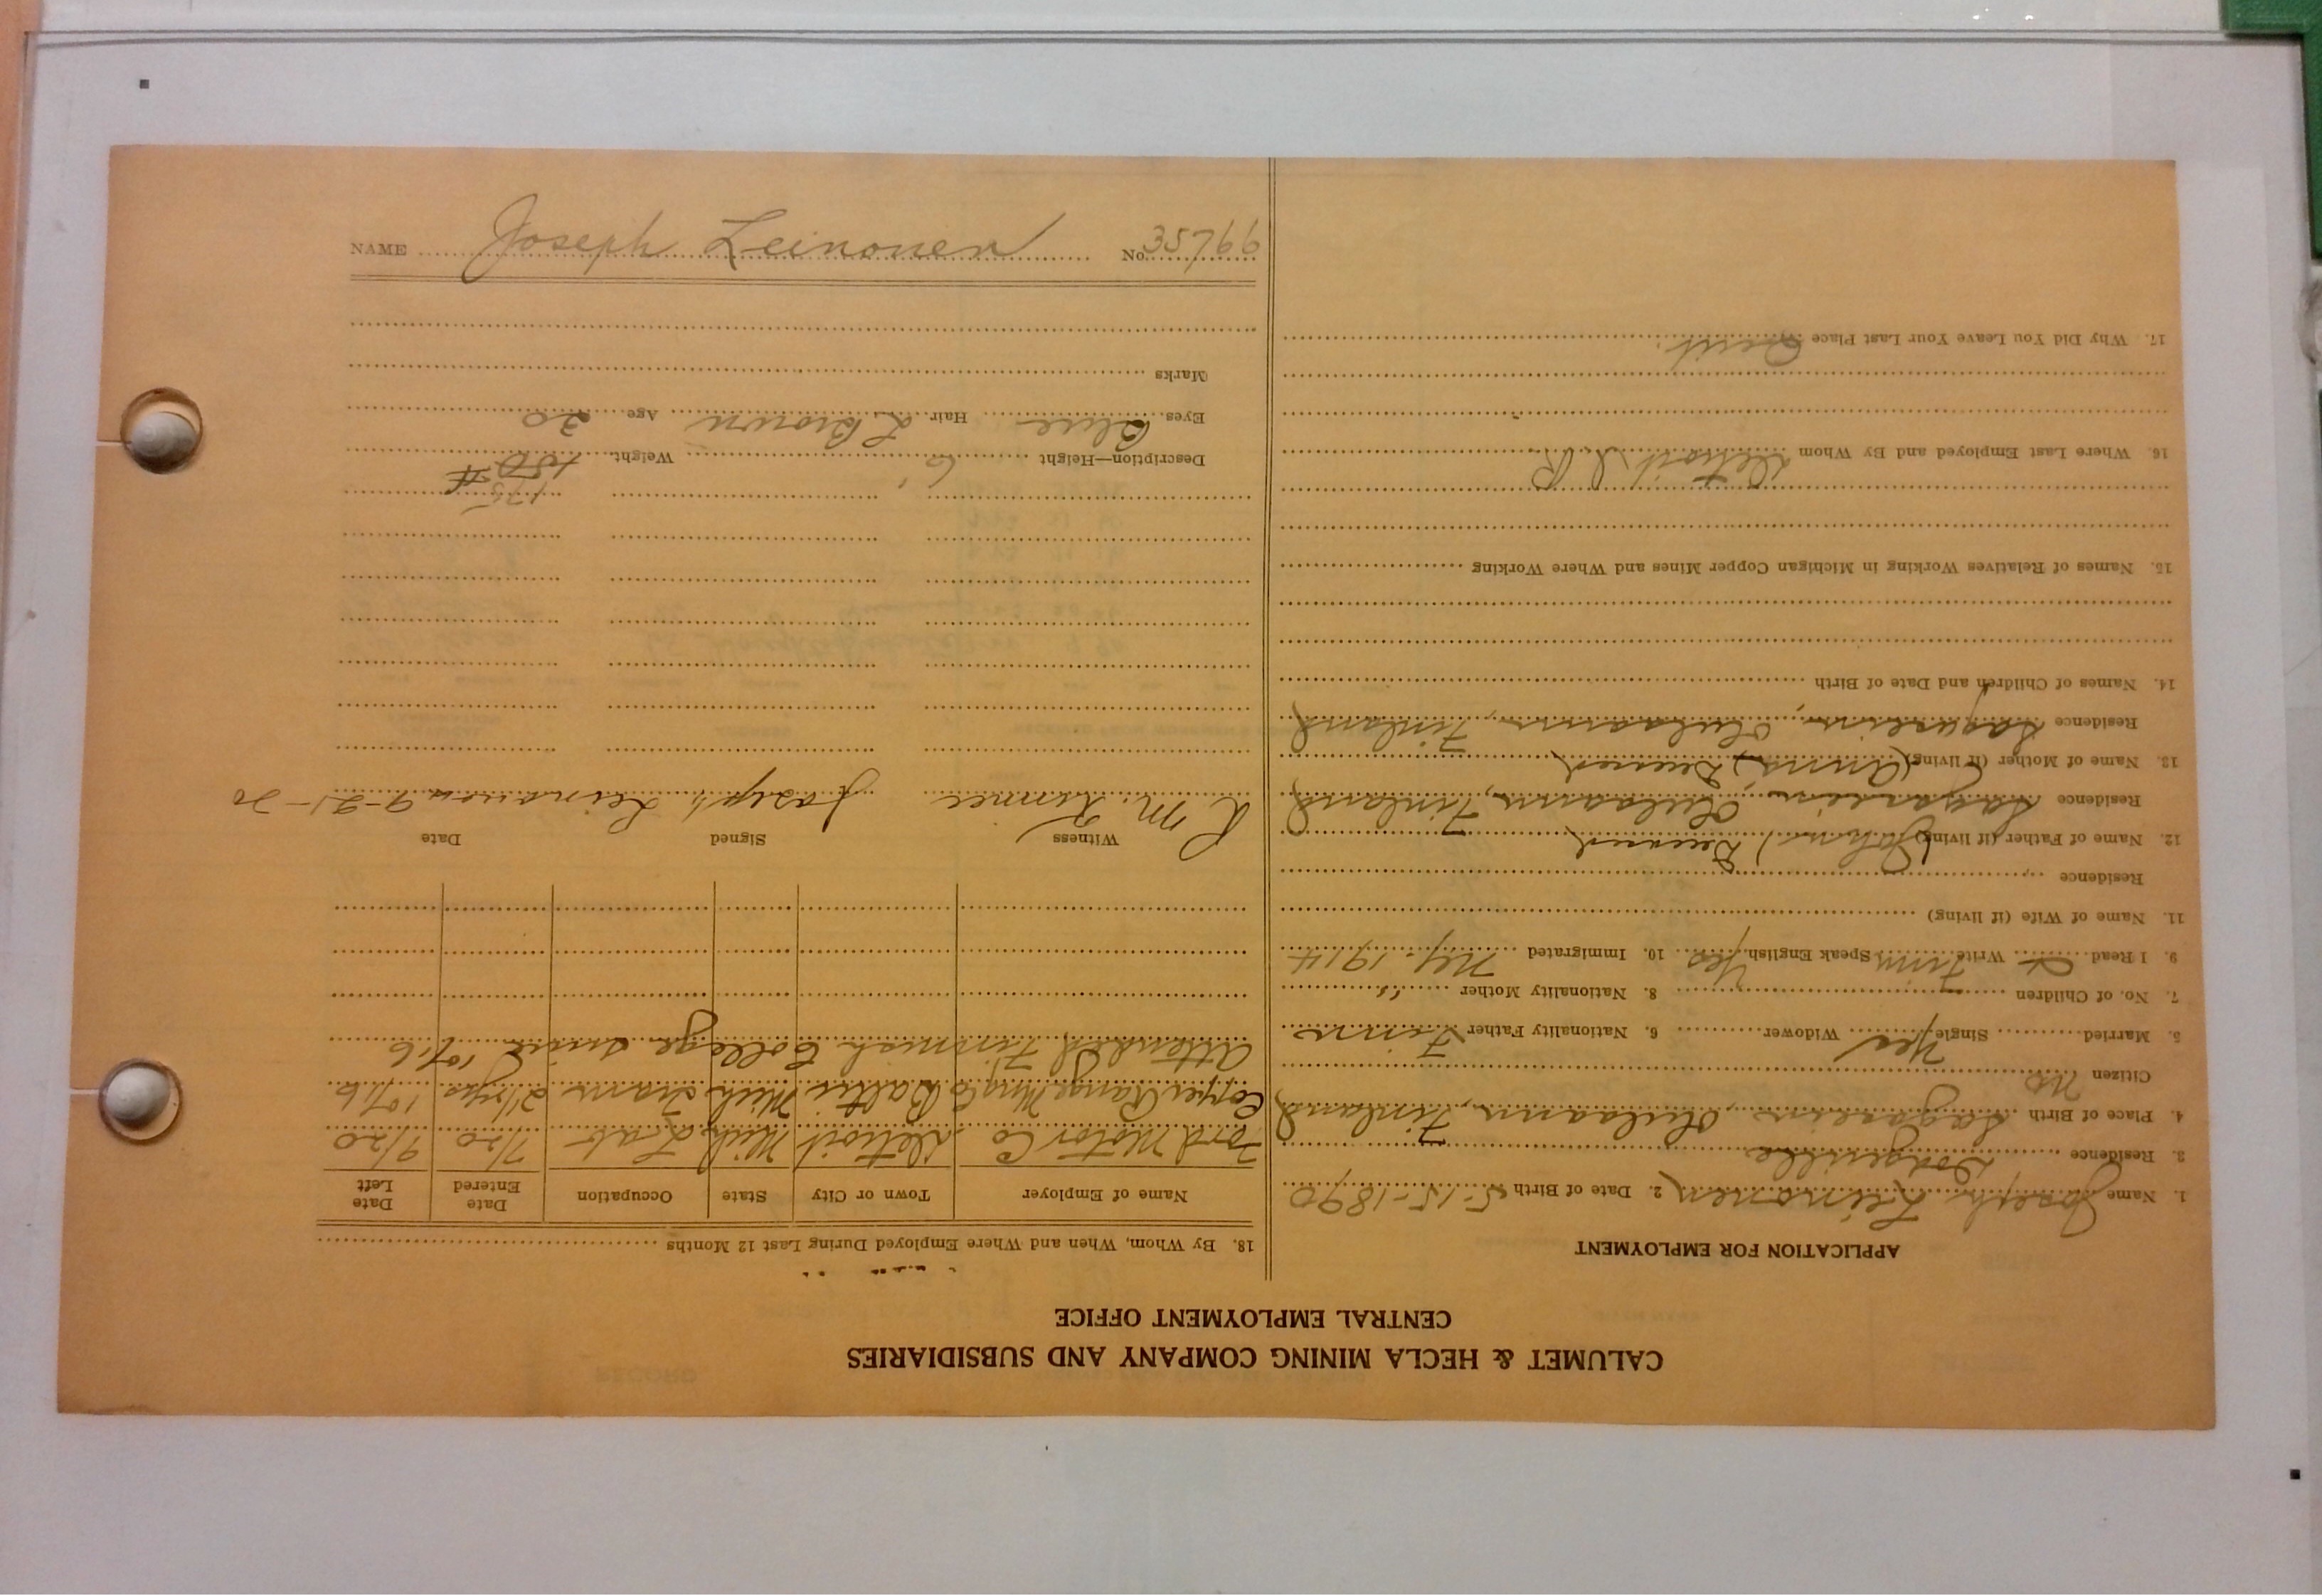 CALUMET & HECLA MINING COMPANY AND SUBSIDIARIES
CENTRAL EMPLOYMENT OFFICE
APPLICATION FOR EMPLOYMENT
1. Name Joseph Leinonen 2. Date of Birth 5-15-1890
3. Residence Dodgeville
4. Place of Birth Oulaann, Finland
Citizen No
5. Married Single Yes Widower 6. Nationality Father Finn
7. No. of Children 8. Nationality Mother "
9. I Read & Write Finn Speak English Yes 10. Immigrated Ny. 1914
11. Name of Wife (if living)
Residence
12. Name of Father (if living) (John) Deceased
Residence Oulaann, Finland
13. Name of Mother (if living) (Anna) Deceased
Residence Oulaann, Finland
14. Names of Children and Date of Birth
15. Names of Relatives Working in Michigan Copper Mines and Where Working
16. Where Last Employed and By Whom Detroit
17. Why Did You Leave Your Last Place Quit.
18. By Whom, When and Where Employed During Last 12 Months
Name of Employer Town or City State Occupation Date Entered Date Left
Ford Motor Co Detroit Mich Lab 7/20 9/20
Copper Range Mng Co Baltic Mich Tram 2 1/2 yrs 10/16
Attended Finnish College since 10/16
Witness Signed Date
Joseph Leinonen 9-21-20
175
Description—Height 6' Weight 150 #
Eyes Blue Hair L Brown Age 30
Marks
NAME Joseph Leinonen No. 35766